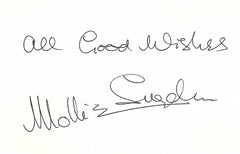 All Good Wishes
Mollie Sugden